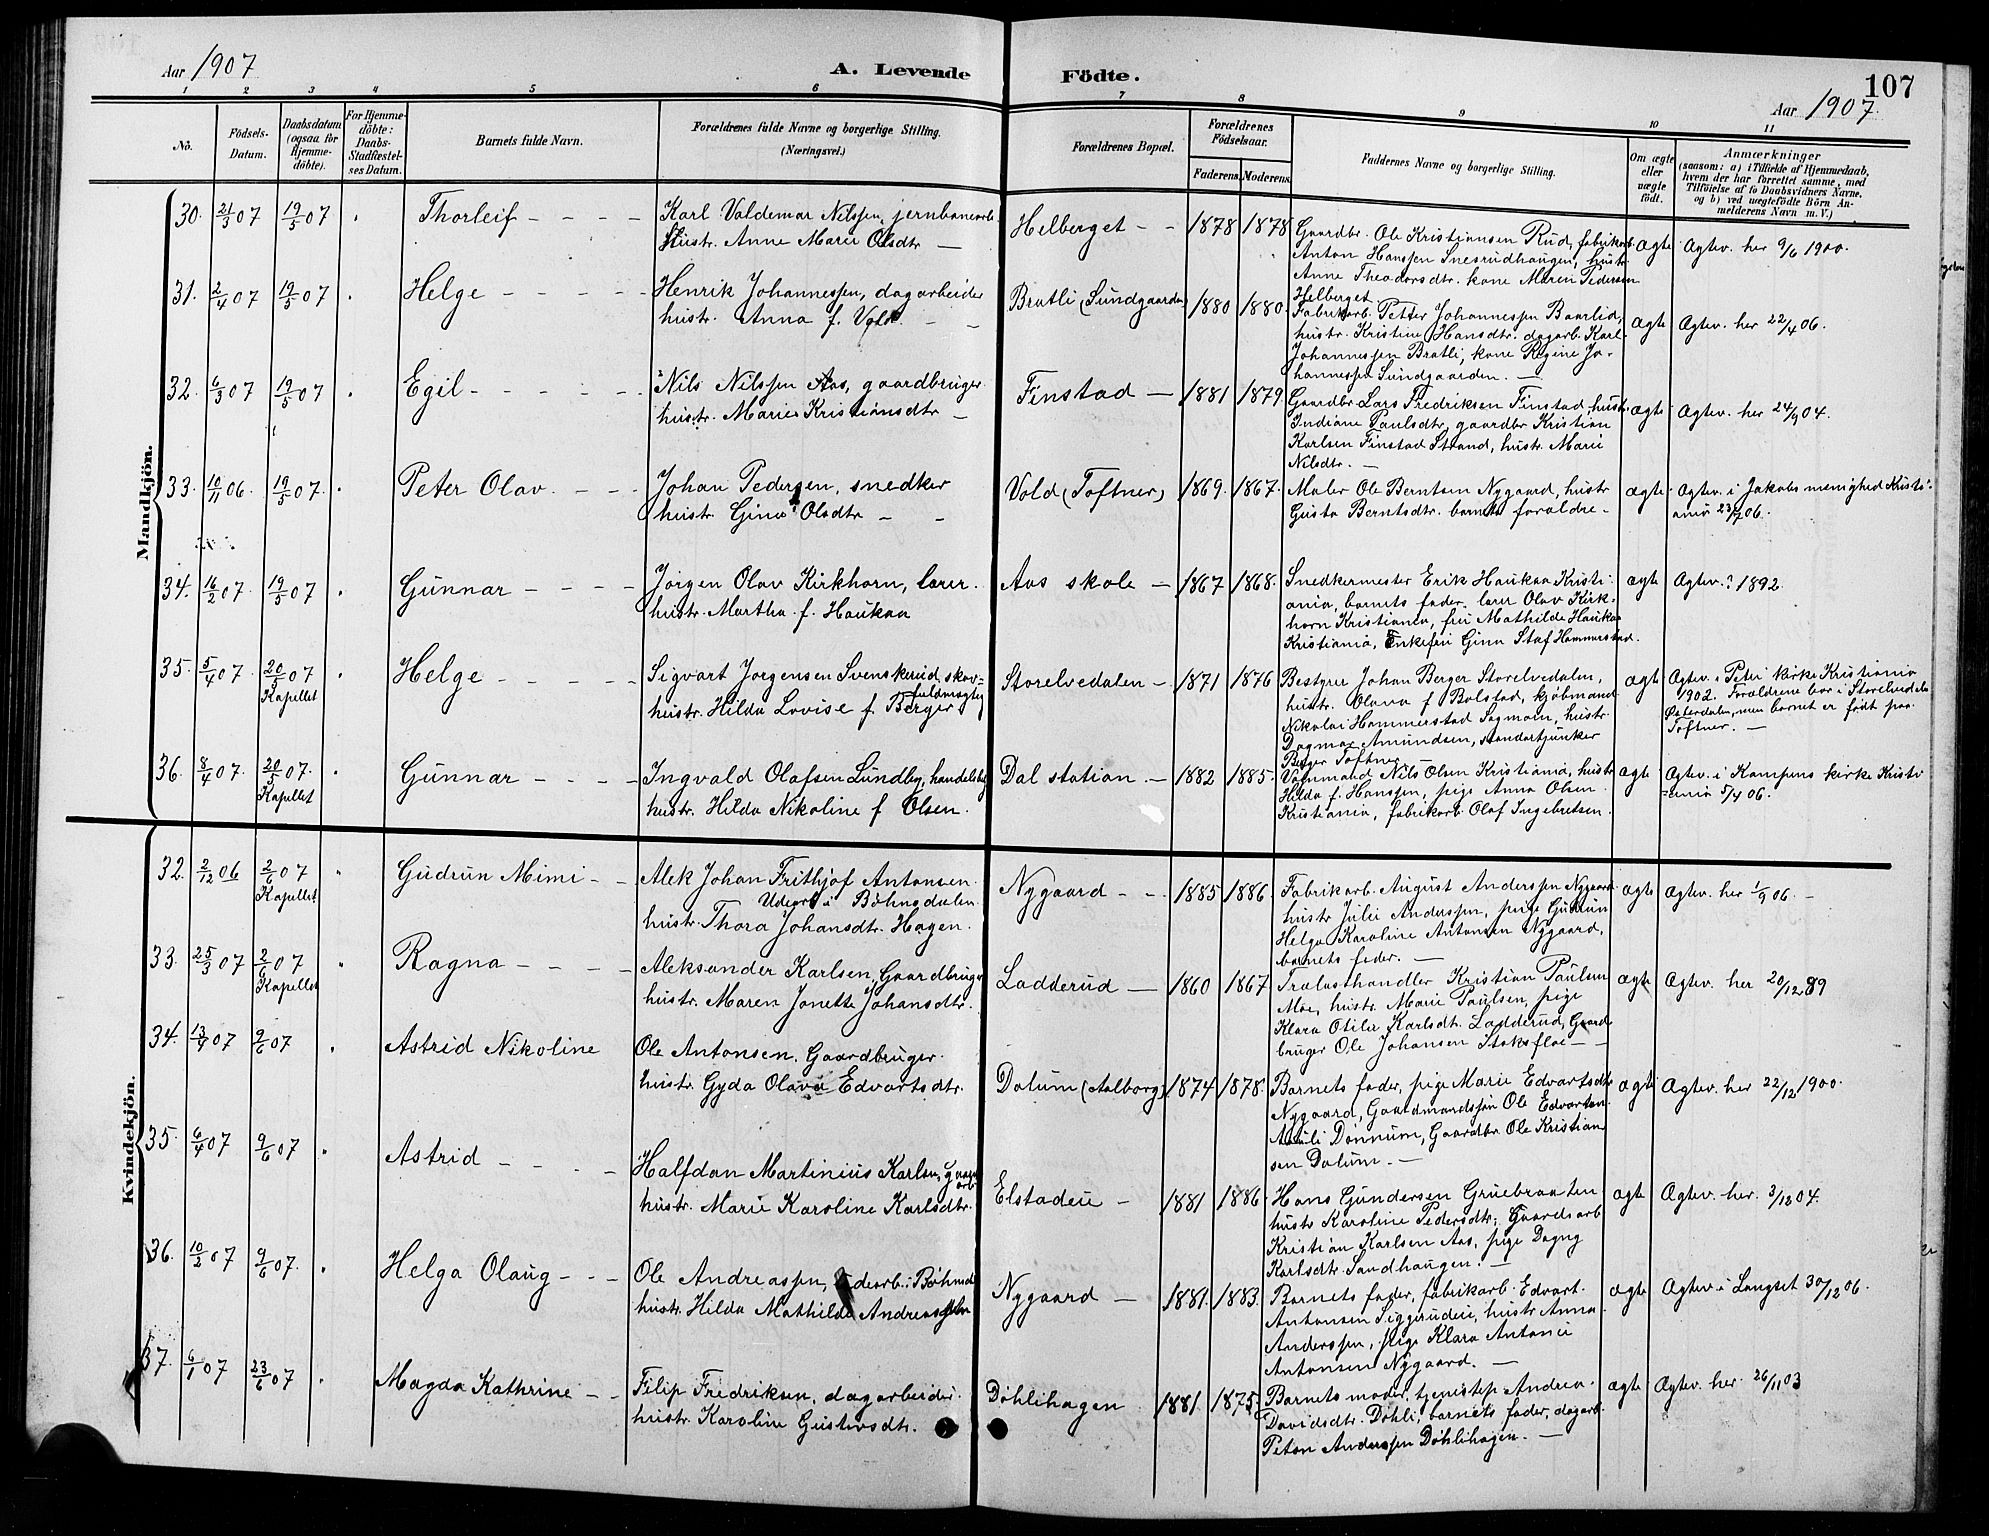 Aar 1907
A. Levende Födte.
107
Aar 1907.
1 2 3 4 5 6 7 8 9 10 11
No.
Födsels-Datum.
Daabsdatum (ogsaa for Hjemme-döbte).
For Hjemme-döbte: Daabs-Stadfæstel-ses Datum.
Barnets fulde Navn.
Forældrenes fulde Navne og borgerlige Stilling. (Næringsvei.)
Forældrenes Bopæl.
Forældrenes Födselsaar.
Faderens. Moderens.
Faddernes Navne og borgerlige Stilling.
Om ægte eller uægte födt.
Anmærkninger
(saasom: a) i Tilfælde af Hjemmedaab, hvem der har forrettet samme, med Tilföielse af to Daabsvidners Navne, og b) ved uægtefödte Börn An-melderens Navn m. V.)
Mandkjön.
30. 21/3 07 19/5 07 Thorleif - - - -
Karl Valdemar Nilssen, jernbanearb.
Hustr. Anne Marie Olsdtr —
Helberget - - 1878 1878
Gaardbr. Ole Kristiansen Rud, fabrikarb.
Anton Hanssen Snesrudhaugen, hustr.
Anne Theodorsdtr. kone Maren Pedersen
Helberget
ægte Ægtev. her 9/6 1900.
31. 2/4 07 19/5 07 Helge - - - -
Henrik Johannessen, dagarbeider
hustr. Anna f. Vold. - -
Bratli (Sundgaarden) 1880 1880.
Fabrikarb. Peter Johannessen Baarlid,
hustr. Kristine Hansdtr. dagarb. Karl
Johannessen Bratli, kone Regine Jo-
hannessen Sundgaarden. —
ægte Ægtev. her 22/4 06.
32. 6/3 07 19/5 07 Egil - - - -
Nils Nilssen Aas, gaardbruger
hustr. Marie Kristiansdtr —
Finstad — 1881 1879.
Gaardbr Lars Fredriksen Finstad, hustr.
Indiane Paulsdtr, gaardbr Kristian
Karlsen Finstad Strand, hustr. Marie
Nilsdtr. —
ægte Ægtev. her 24/9 04.
33. 10/11 06. 19/5 07. Peter Olav. - - -
Johan Pedersen, snedker
hustr. Gina Olsdtr - -
Vold (Toftner) 1869. 1867.
Maler Ole Berntsen Nygaard, hustr
Gusta Berntsdtr. barnets forældre -
ægte Ægtev. i Jakobs menighed Kristi-
ania 23/7 06.
34. 16/2 07. 19/5 07 Gunnar - - - -
Jörgen Olav Kirkhorn, lærer.
hustr. Martha f. Haukaa
Aas skole — 1867 1868.
Snedkermester Erik Haukaa Kristi-
ania, barnets fader. lærer Olav Kirk-
horn Kristiania, fru Mathilde Haukaa
Kristiania, Enkefru Gina Staf Hammerstad.
ægte Ægtev. ? 1892.
35. 5/4 07. 20/5 07 Kapellet Helge - - - -
Sigvart Jörgensen Svenskerud skov-
fuldmægtig
hustr. Hilda Lovise f. Berger
Storelvedalen - 1871 1876
Bestyrer Johan Berger Storelvedalen,
hustr. Olava f Bolstad, kjöbmand
Nikolai Hammerstad Sagmoen, hustr.
Dagmar Amundsen, standartjunker
Berger Toftner —
ægte Ægtev. i Petri kirke Kristiania
1902. Forældrene bor i Storelvedalen
Østerdalen, men barnet er født paa
Toftner. —
36. 8/4 07. 20/5 07. Kapellet Gunnar - - -
Ingvald Olafsen Lundby, handelsbetj
hustr. Hilda Nikoline f Olsen.
Dal station — 1882 1885.
Vognmand Nils Olsen Kristiania, hustr
Hilda f. Hanssen, pige Anna Olsen
Kristiania, fabrikarb Olaf Ingebretsen.
ægte Ægtev. i Kampens kirke Kristi-
ania 5/4 06.
Kvindekjön.
32. 2/12 06 2/6 07 Kapellet Gudrun Mimi - -
Alek Johan Frithjof Antonsen
Udearb i Böhnsdalen
hustr. Thora Johansdtr. Hagen.
Nygaard - - 1885 1886.
Fabrikarb. August Anderssen Nygaard
hustr Julie Anderssen, pige Gudrun
Helga Karoline Antonsen Nygaard,
barnets fader. —
ægte Ægtev. her 1/9 06. -
33. 25/3 07 2/6 07 Kapellet Ragna - - - -
Aleksander Karlsen, Gaardbruger
hustr. Maren Jonette Johansdtr.
Ladderud — 1860 1867
Trælasthandler Kristian Paulsen
Moe, hustr. Marie Paulsen, pige
Klara Otilie Karlsdtr. Ladderud, Gaard-
bruger Ole Johansen Stoksfloe - -
ægte Ægtev. her 20/12 89
34. 13/4 07 9/6 07 Astrid Nikoline
Ole Antonsen, Gaardbruger.
hustr. Gyda Olava Edvartsdtr.
Dalum (Aalborg) 1874 1878.
Barnets fader, pige Marie Edvartsdtr
Nygaard, Gaardmandssön Ole Edvartsen
Dönnum, Gaardbr Ole Kristian-
sen Dalum. —
ægte Ægtev. her 22/12 1900.
35. 6/4 07 9/6 07 Astrid - - - -
Halfdan Martinius Karlsen, gaards
arb.
hustr. Marie Karoline Karlsdtr.
Elstadeie - 1881 1886.
Hans Gundersen Gruebraaten
hustr Karoline Pedersdtr, Gaardsarb
Kristian Karlsen Aas, pige Dagny
Karlsdtr. Sandhaugen. —
ægte Ægtev. her. 3/12 04.
36. 10/2 07 9/6 07. Helga Olaug - - -
Ole Andreassen, Udearb. i Böhnsd
hustr. Hilda Mathilde Andreassen
Nygaard — 1881. 1883.
Barnets fader, fabrikarb. Edvart
Antonsen Siggerudeie, hustr Anna
Anderssen, pige Klara Antonie
Antonsen Nygaard. —
ægte Ægtev. i Langset 30/12 06.
37. 6/1 07 23/6 07 Magda Kathrine - -
Filip Fredriksen, dagarbeider
hustr. Karoline Gustavsdtr.
Döhlihagen 1881. 1875.
Barnets moder, tjenestep Andrea
Davidsdtr. Döhli, barnets fader, dagarb.
Peter Anderssen Döhlihagen. —
ægte Ægtev. her. 26/11 03